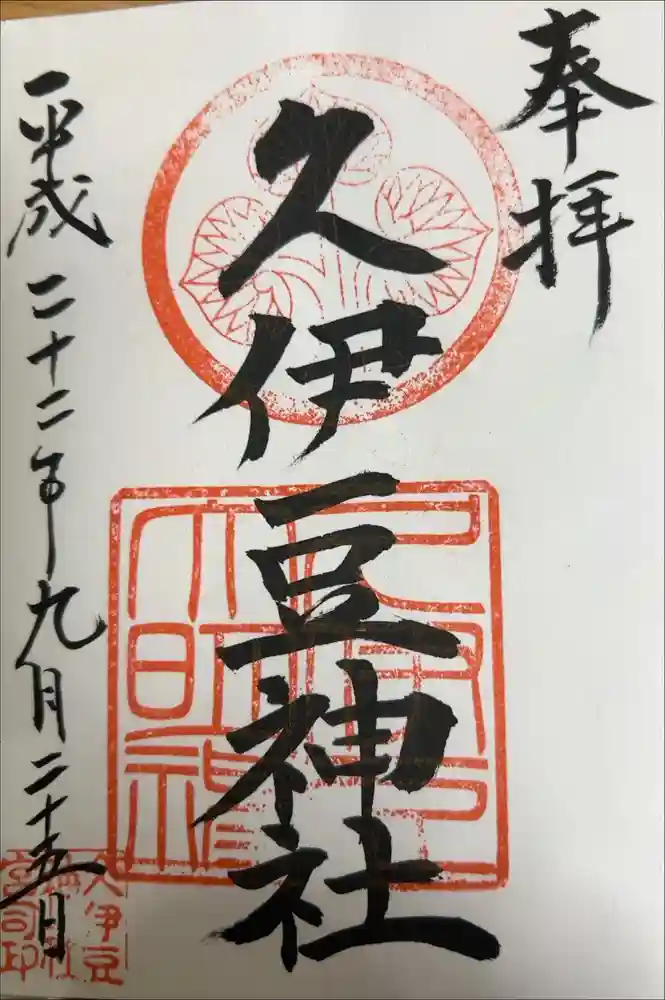 奉拝
久伊豆神社
平成二十二年九月二十五日
久伊豆
神社
宮司印